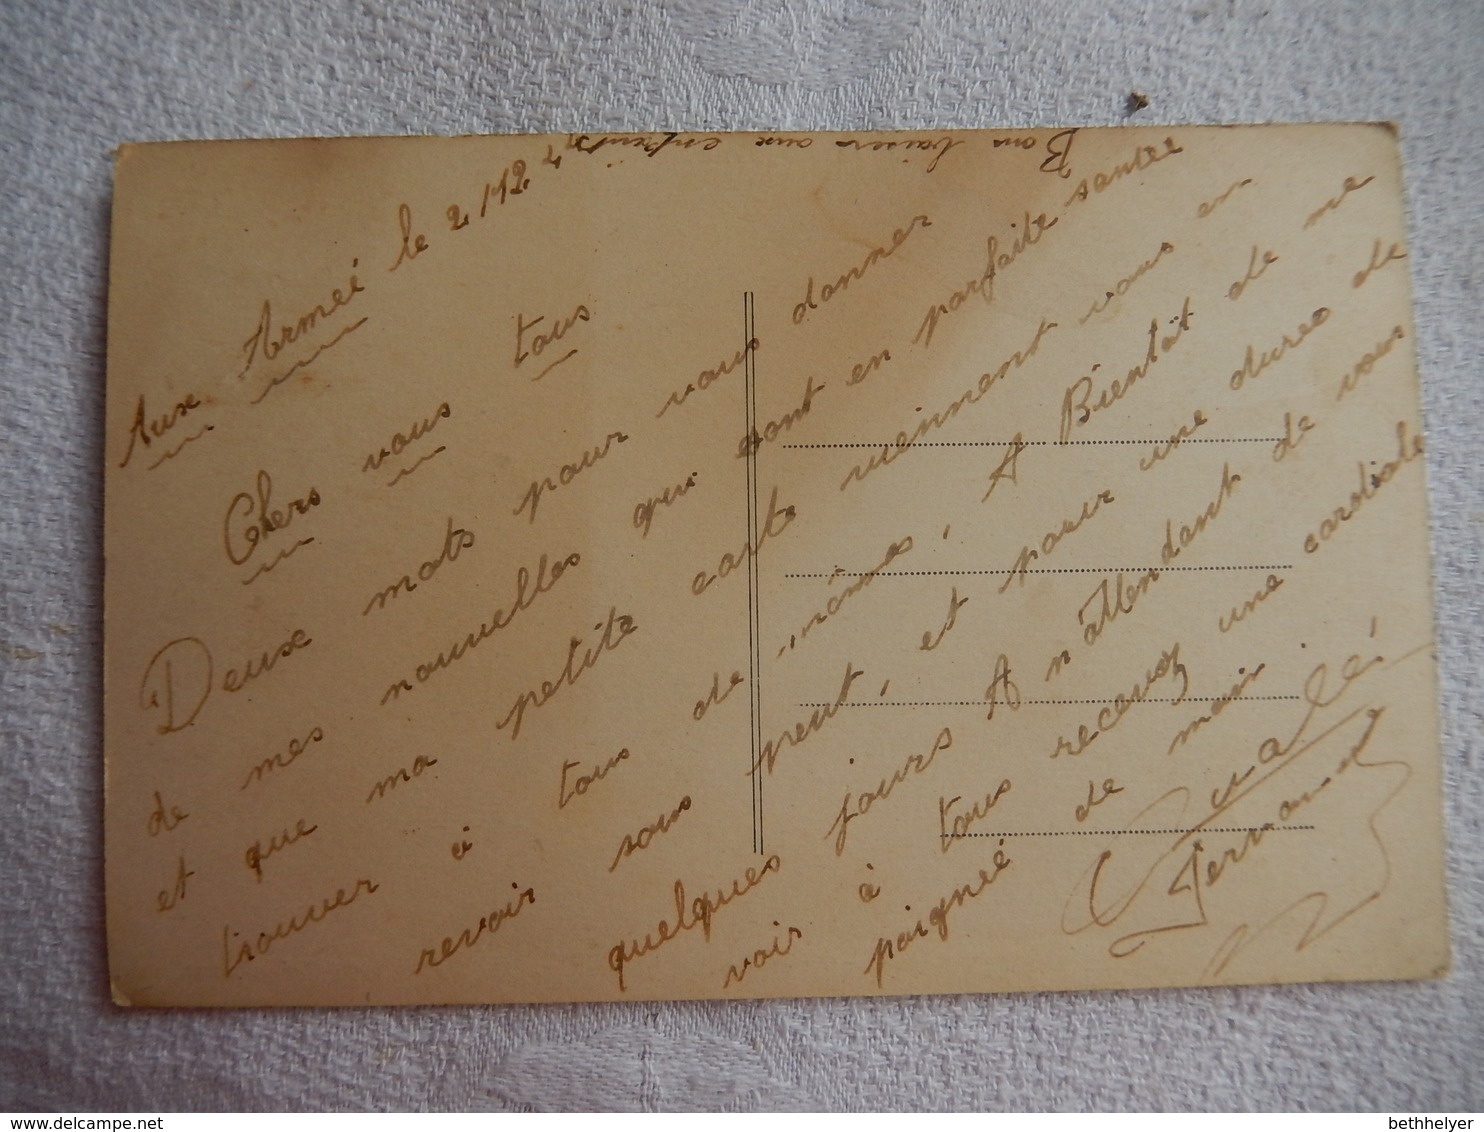 Bons baisers aux enfents
Aux Armeé le 2/12
Chers vous tous
Deux mots pour vous donner
de mes nouvelles qui sont en parfaite santée
et que ma petite carte viennent vous en
trouver à tous de mêmes, A Bientôt de me
revoir sous peut, et pour une dures de
quelques jours A n'attendant de vous
voir à tous recevez une cordiale
poigneé de main.
Fernand
bethhelyer